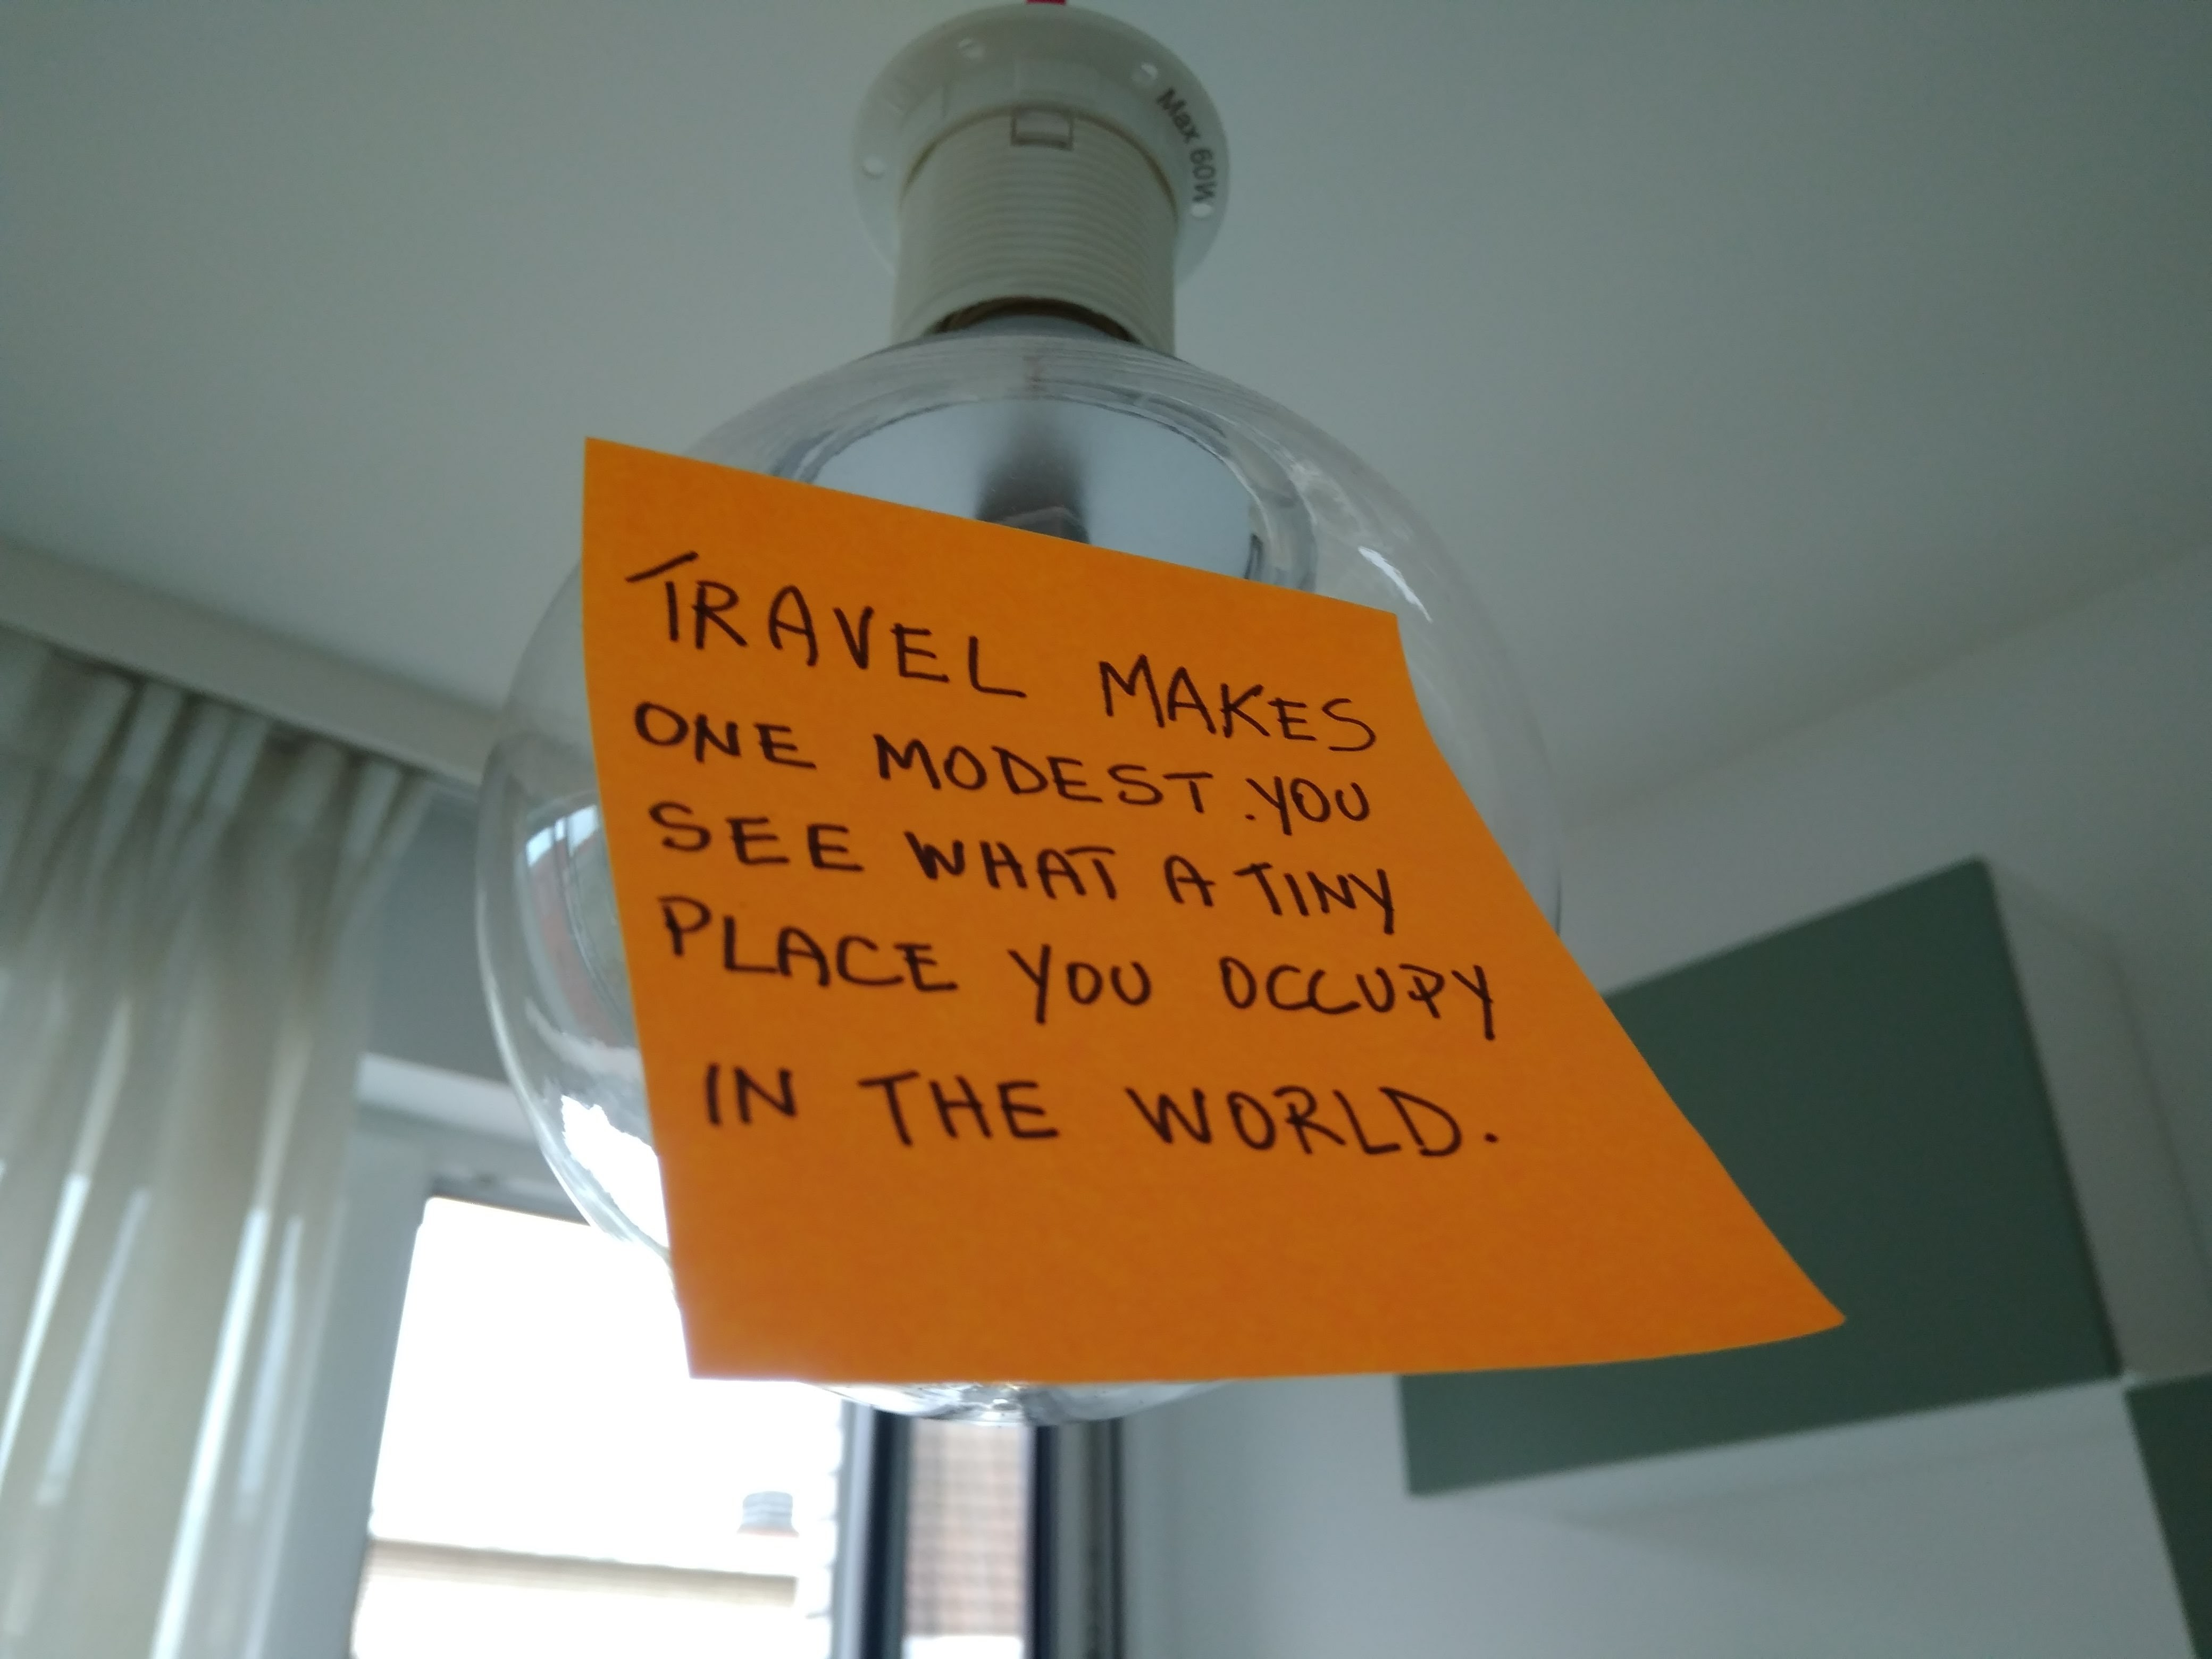 Max 60W
TRAVEL MAKES
ONE MODEST. YOU
SEE WHAT A TINY
PLACE YOU OCCUPY
IN THE WORLD.